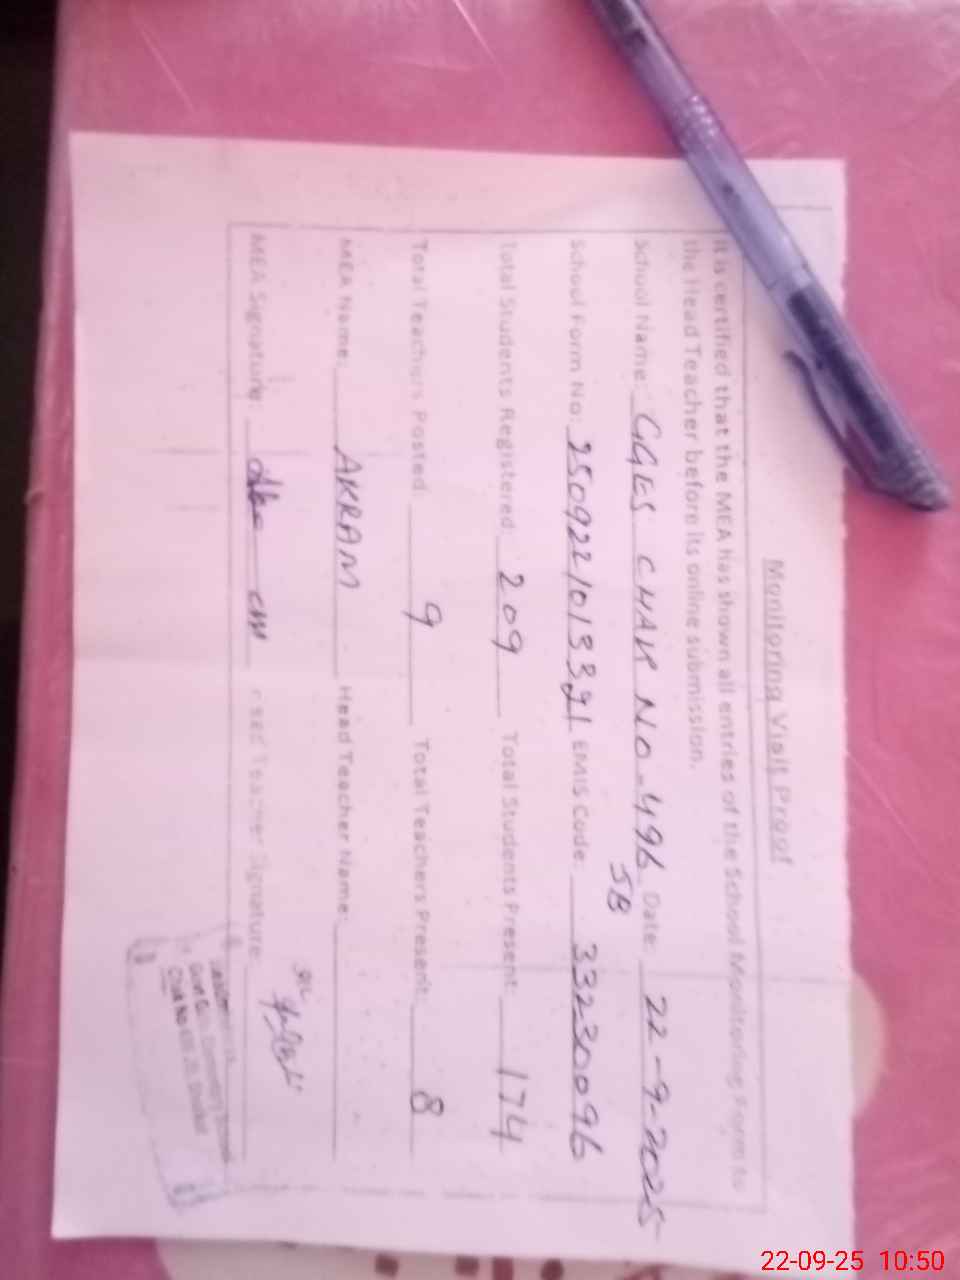 Monitoring Visit Proof
It is certified that the MEA has shown all entries of the School Monitoring Form to
the Head Teacher before its online submission.
School Name: GGES CHAK NO-496 Date: 22-9-2025
JB
School Form No: 2509221013321 EMIS Code: 33230096
Total Students Registered: 209 Total Students Present: 174
Total Teachers Posted: 9 Total Teachers Present: 8
MEA Name: AKRAM Head Teacher Name:
MEA Signature: Head Teacher Signature:
Govt Elementary School
Chak No
22-09-25 10:50